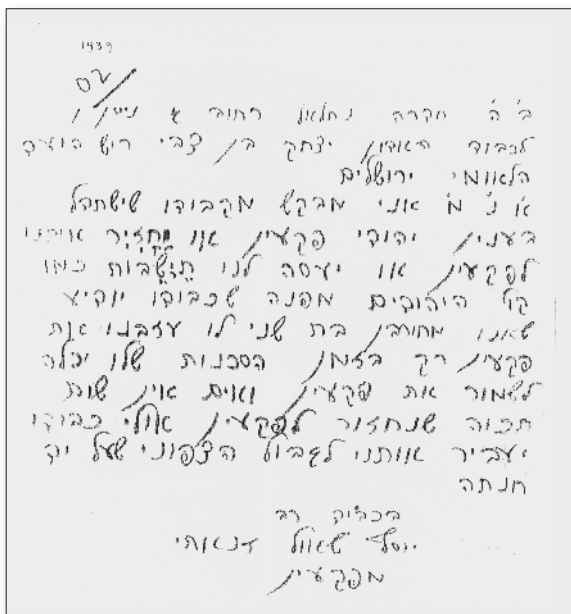 1939
ב"ה חדרה נחלאל רחוב א ניסן
לכבוד האדון יצחק בן צבי ריש הועד
הלאומי ירושלים
א נ מ אני מבקש מקבודו שישתדל
בענין יהודי פקעין או יחזיר אותנו
לפקעין או יעסה לנו תושבות כמו
קל היהודים מפנה שכבודו יודיע
שאנו מחורבן בת שני לו עזבנו את
פקעין רק בזמן הסכנות שלו יכלה
לשמור את פקעין ואים אין שות
תכוה שנחזור לפקעין אולי כבודו
יעביר אותנו לגבול הצפוני שעל יד
חנתה
בכביה רב
יוסף שאול זנאתי
מפקעין